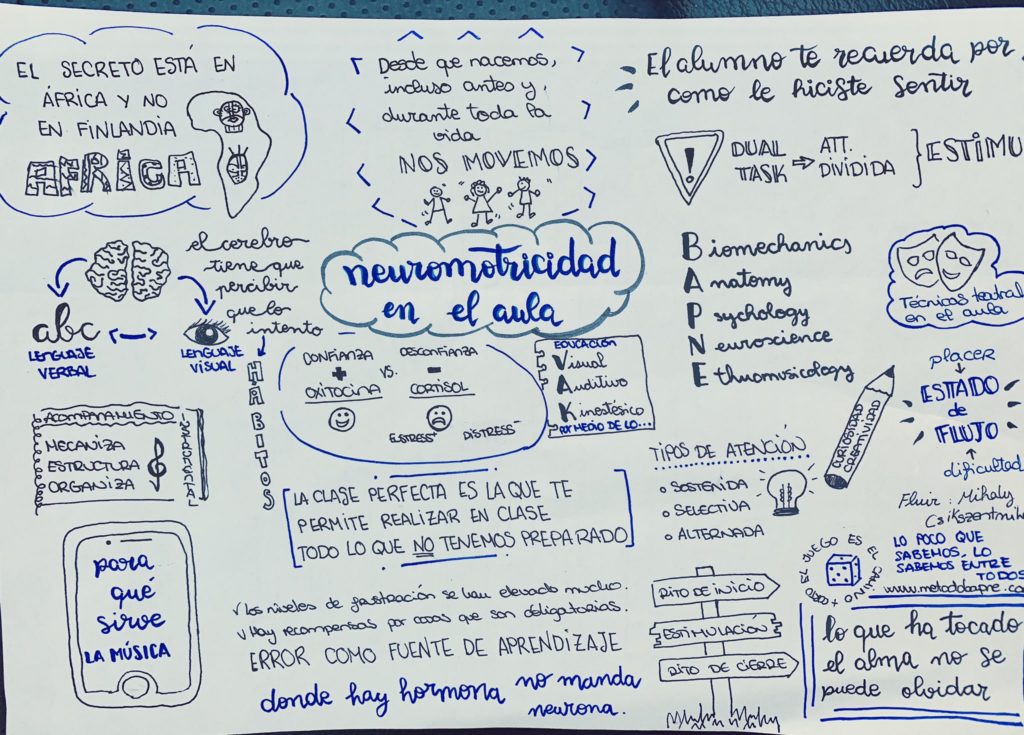 EL SECRETO ESTÁ EN
ÁFRICA Y NO
EN FINLANDIA
AFRICA
Desde que nacemos,
incluso antes y
durante toda la
vida
NOS MOVEMOS
El alumno te recuerda por
como le hiciste sentir
!
DUAL
TASK
ATT.
DIVIDIDA
ESTIMU
neuromotricidad
en el aula
el cerebro
tiene que
percibir
que lo
intento
abc
LENGUAJE
VERBAL
LENGUAJE
VISUAL
HÁBITOS
CONFIANZA
+
OXITOCINA
VS.
DESCONFIANZA
-
CORTISOL
EUSTRESS+
DISTRESS-
EDUCACIÓN
Visual
Auditivo
Kinestésico
POR MEDIO DE LO...
Biomechanics
Anatomy
Psychology
Neuroscience
Ethnomusicology
Técnicas teatral
en el aula
placer
ESTADO
de
FLUJO
dificultad
Fluir: Mihaly
Csikszentmih
CURIOSIDAD
CREATIVIDAD
ACOMPAÑAMIENTO
MECANIZA
ESTRUCTURA
ORGANIZA
LA CLASE PERFECTA ES LA QUE TE
PERMITE REALIZAR EN CLASE
TODO LO QUE NO TENEMOS PREPARADO
TIPOS DE ATENCIÓN
SOSTENIDA
SELECTIVA
ALTERNADA
para
qué
sirve
LA MÚSICA
✓ los niveles de frustración se han elevado mucho.
✓ Hay recompensas por cosas que son obligatorias.
ERROR COMO FUENTE DE APRENDIZAJE
donde hay hormona no manda
neurona.
RITO DE INICIO
ESTIMULACIÓN
RITO DE CIERRE
EL JUEGO ES EL CAMINO
LO POCO QUE
SABEMOS, LO
SABEMOS ENTRE
TODOS
www.metodobapne.co
lo que ha tocado
el alma no se
puede olvidar